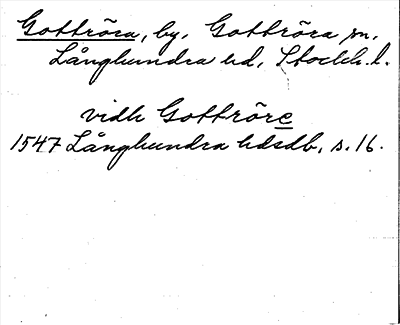 Gottröra, by. Gottröra sn,
Långhundra hd, Stockh. l.
vidh Gottröre
1547 Långhundra hdsdb, s. 16.